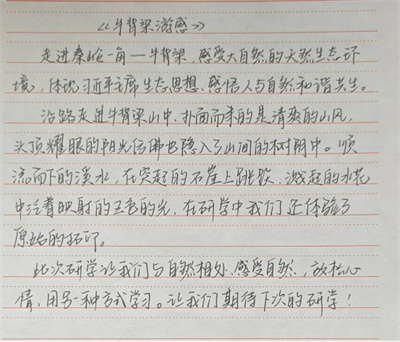 《牛背梁游感》
走进秦岭一角—牛背梁，感受大自然的天然生态环
境，体现习近平主席生态思想、感悟人与自然和谐共生。
沿路走进牛背梁山中，扑面而来的是清爽的山风，
头顶耀眼的阳光仿佛也隐入了山间的树阴中。顺
流而下的溪水，在突起的石崖上跳跃，溅起的水花
中泛着映射的五色的光，在研学中我们还体验了
原始的拓印。
此次研学让我们与自然相处、感受自然，放松心
情，用另一种方式学习。让我们期待下次的研学！